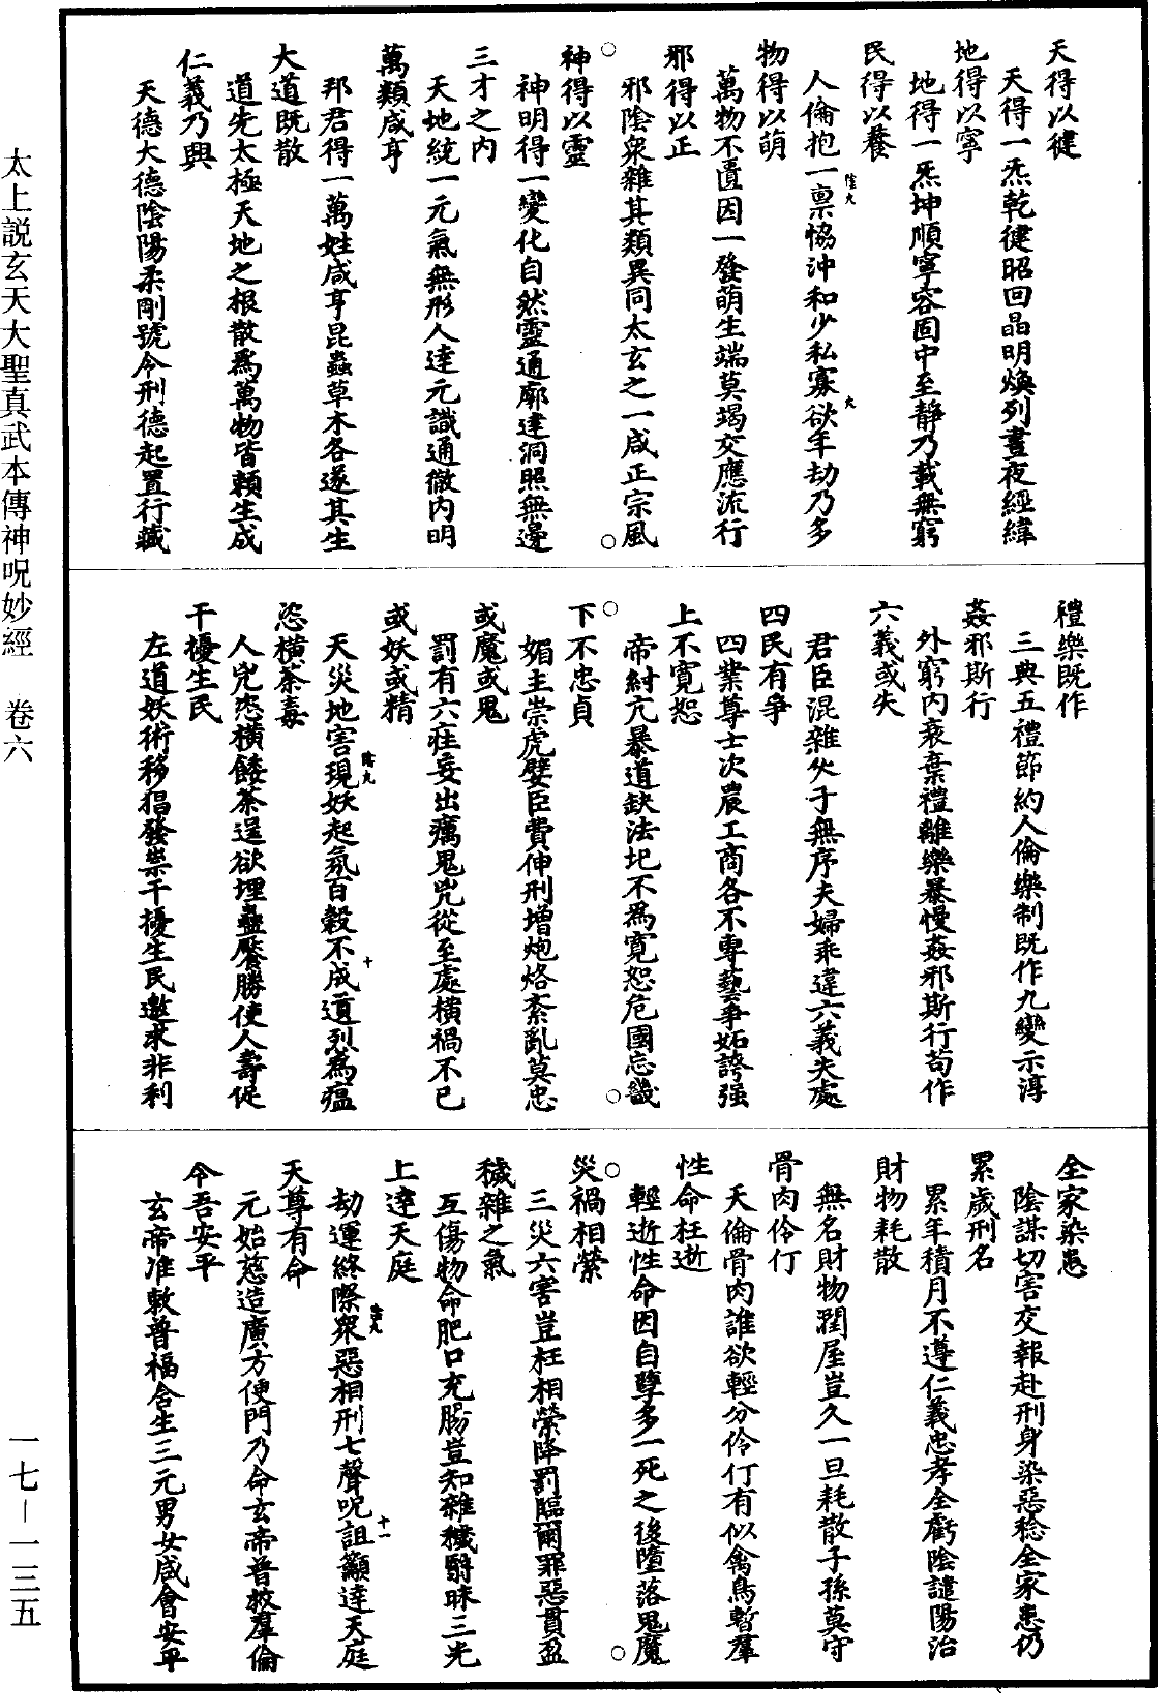 天得以徤
天得一炁乾徤昭回晶明煥列晝夜經緯
地得以寧
地得一炁坤順寧容固中至靜乃載無窮
民得以養
人倫抱一稟恊沖和少私寡欲年劫乃多
物得以萌
萬物不匱因一發萌生端莫竭交應流行
邪得以正
邪陰衆雜其類異同太玄之一咸正宗風
神得以靈
神明得一變化自然靈通廓達洞照無邊
三才之內
天地統一元氣無形人達元識通徹內明
萬類咸亨
邦君得一萬姓咸亨昆蟲草木各遂其生
大道既散
道先太極天地之根散爲萬物皆賴生成
仁義乃興
天德大德陰陽柔剛號令刑德起置行藏
禮樂既作
三典五禮節約人倫樂制既作九變示淳
姦邪斯行
外窮內衰棄禮離樂暴慢姦邪斯行苟作
六義或失
君臣混雜父子無序夫婦乖違六義失處
四民有爭
四業尊士次農工商各不專藝爭妬誇强
上不寬恕
帝紂亢暴道缺法圮不爲寬恕危國忘畿
下不忠貞
媚主崇虎嬖臣費仲刑增炮烙紊亂莫忠
或魔或鬼
罰有六疰妄出癘鬼兇從至處橫禍不已
或妖或精
天災地害現妖起氛百穀不成道烈爲瘟
恣橫荼毒
人兇恣橫餧荼逞欲埋蠱厭勝使人壽促
干擾生民
左道妖術移搵發祟干擾生民邀求非利
全家染患
陰謀切害交報赴刑身染惡稔全家患仍
累歲刑名
累年積月不遵仁義忠孝全虧陰譴陽治
財物耗散
無名財物潤屋豈久一旦耗散子孫莫守
骨肉伶仃
天倫骨肉誰欲輕分伶仃有似禽鳥暫羣
性命枉逝
輕逝性命因自孽多一死之後墮落鬼魔
災禍相縈
三災六害豈枉相縈降罰臨爾罪惡貫盈
穢雜之氣
互傷物命肥口充腸豈知雜穢翳昧三光
上達天庭
劫運終際衆惡相刑七聲呪詛籲達天庭
天尊有命
元始慈造廣方便門乃命玄帝普救羣倫
令吾安平
玄帝准敕普福含生三元男女咸會安平
太上説玄天大聖真武本傳神呪妙經　卷六
一七—一三五